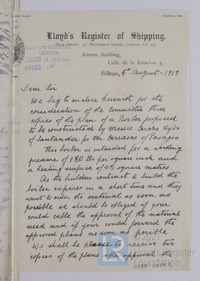 Lloyd's Register of Shipping,
Head Office: 71, Fenchurch Street, London, E.C. 3.
Aurora Building,
Calle de la Estacion 5,
Bilbao, 6th August 1919
Dear Sir
We beg to enclose herewith for the
consideration of the committee three
copies of the plan of a Boiler proposed
to be constructed by Messrs
of Santander, for Mr of
This boiler is intended for a working
pressure of 180 lbs per square inch and
a heating surface of square metres
As the builders contract to build the
boiler expires in a short time and they
want to order the material as soon as
possible we should be obliged if you
could cable the approval of the material
used and if you would forward the
approved plans as soon as possible
We shall be pleased to receive two
copies of the plans when approved the